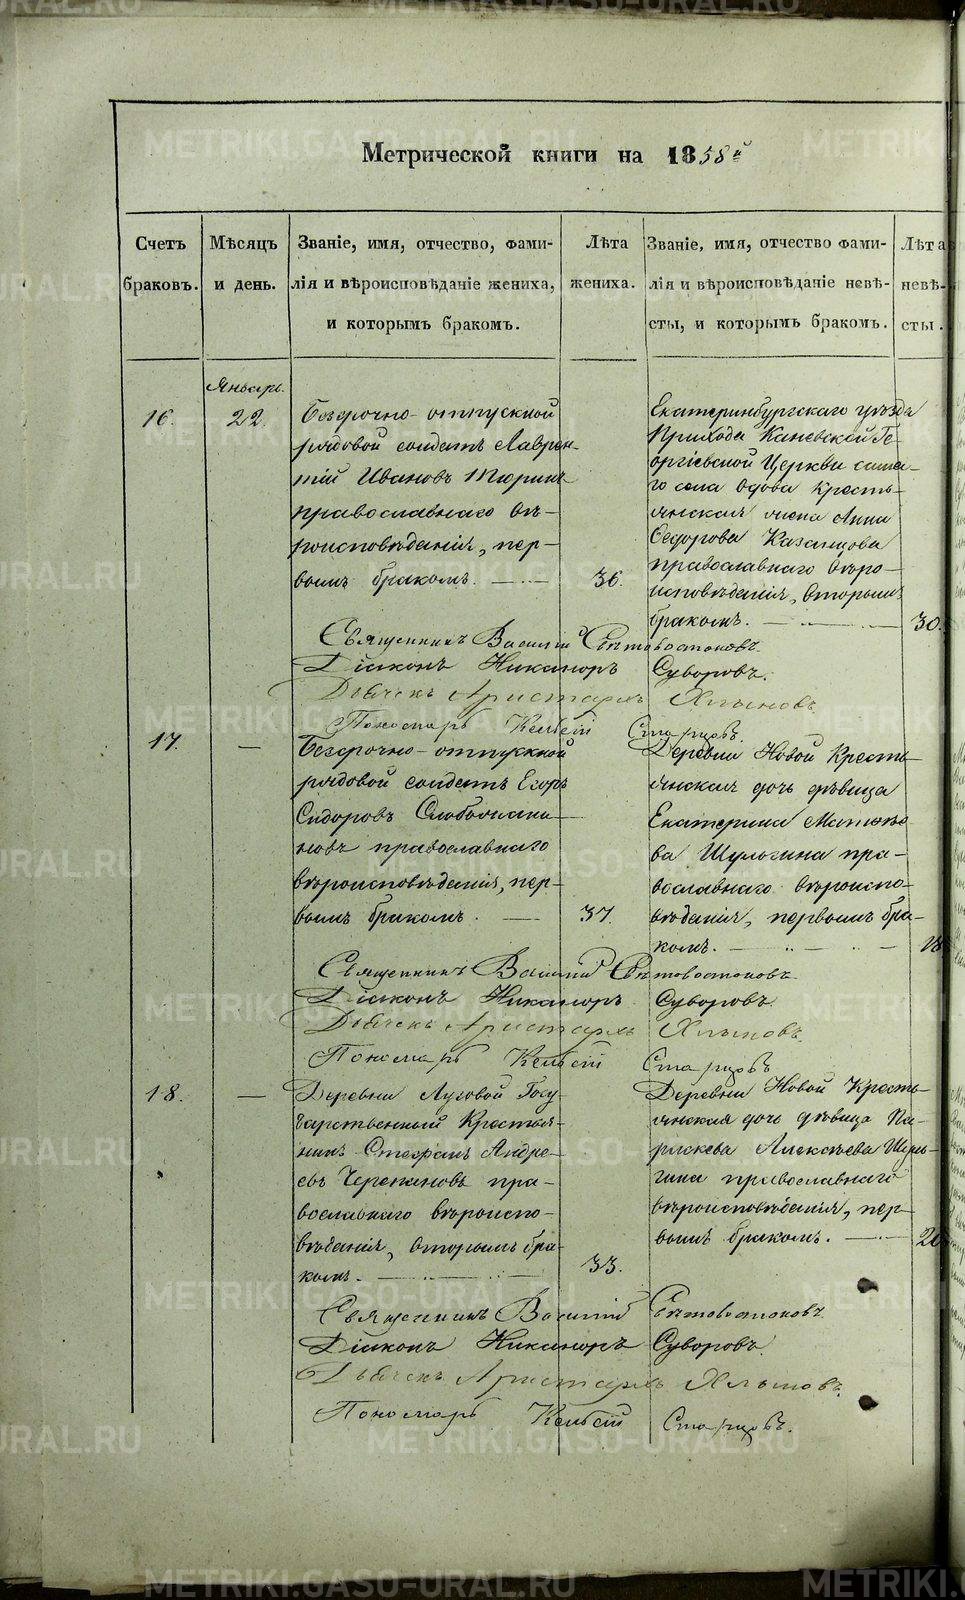 METRIKI.GASO-URAL.RU
Метрической книги на 1858й
Счетъ браковъ.
Мѣсяцъ и день.
Званіе, имя, отчество, фами-
лія и вѣроисповѣданіе жениха,
и которымъ бракомъ.
Лѣта жениха.
Званіе, имя, отчество фами-
лія и вѣроисповѣданіе невѣ-
сты, и которымъ бракомъ.
Лѣта невѣ-
сты.
Январь.
16.
22.
Безсрочно-отпускной
рядовой солдатъ Лаврен-
тій Ивановъ Тюринъ
православнаго вѣ-
роисповѣданія, пер-
вымъ бракомъ.
36.
Екатеринбургскаго уѣзда
Прихода Каневской Ге-
оргіевской Церкви сама-
го села вдова кресть-
янская жена Анна
Ѳедорова Казанцова
православнаго вѣро-
исповѣданія, вторымъ
бракомъ.
30.
Священникъ Василій Свѣтовостоковъ.
Діаконъ Никаноръ Суворовъ.
Дьячекъ Аристархъ Хлыновъ.
Пономарь Кельсій Старцовъ.
17.
Безсрочно-отпускной
рядовой солдатъ Егоръ
Сидоровъ
новъ православнаго
вѣроисповѣданія, пер-
вымъ бракомъ.
37.
Деревни Новой Кресть-
янская дочь дѣвица
Екатерина Матвѣе-
ва Шульгина пра-
вославнаго вѣроиспо-
вѣданія, первымъ бра-
комъ.
18
Священникъ Василій Свѣтовостоковъ
Діаконъ Никаноръ Суворовъ
Дьячекъ Аристархъ Хлыновъ.
Пономарь Кельсій Старцовъ
18.
Деревни Луговой Госу-
дарственный Крестья-
нинъ Стефанъ Андре-
евъ Черепановъ пра-
вославнаго вѣроиспо-
вѣданія, вторымъ бра-
комъ.
33.
Деревни Новой Кресть-
янская дочь дѣвица Па-
раскева Алексѣева Шуль-
гина православнаго
вѣроисповѣданія, пер-
вымъ бракомъ.
20
Священникъ Василій Свѣтовостоковъ
Діаконъ Никаноръ Суворовъ.
Дьячекъ Аристархъ Хлыновъ.
Пономарь Кельсій Старцовъ.